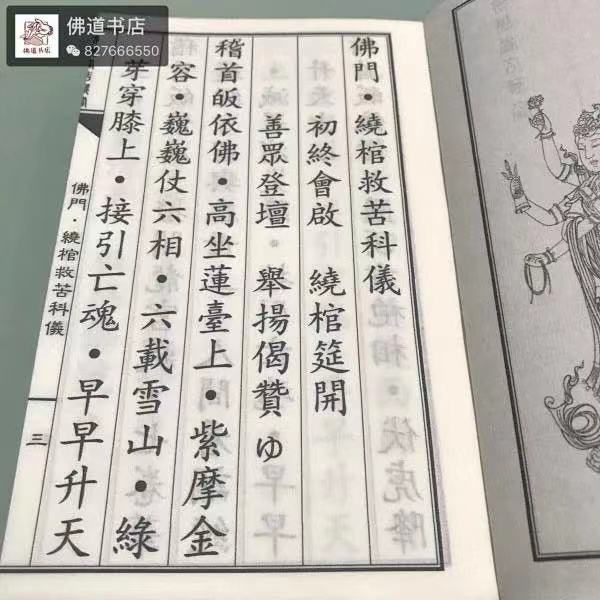 佛道书店
827666550
佛道书店
佛門・繞棺救苦科儀
初終會啟　繞棺筵開
善眾登壇　舉揚偈贊ゆ
稽首皈依佛・高坐蓮臺上・紫摩金
容・巍巍仗六相・六載雪山・綠
芽穿膝上・接引亡魂・早早升天
佛門・繞棺救苦科儀
三